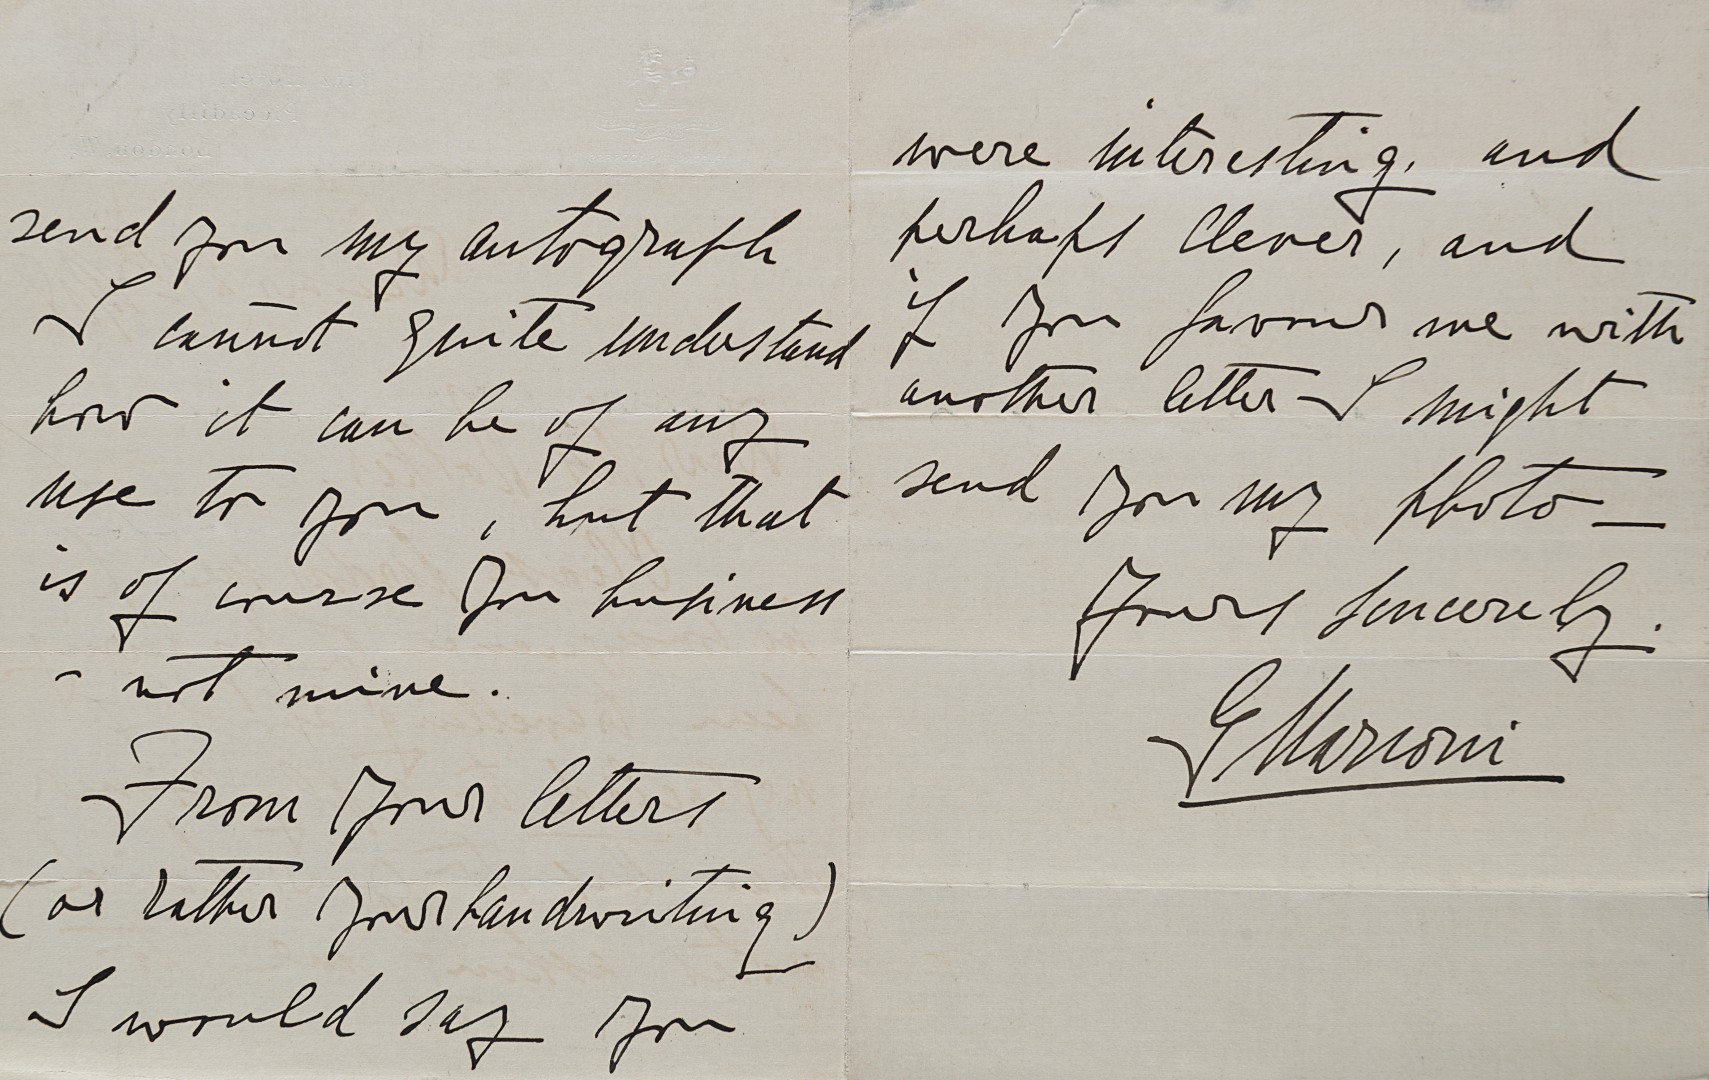 send you my autograph
I cannot quite understand
how it can be of any
use to you, but that
is of course you business
- not mine.
From your letters
(or rather your handwriting)
I would say you
were interesting, and
perhaps clever, and
if you favour me with
another letter I might
send you my photo —
Yours sincerely.
G Marconi
Piccadilly